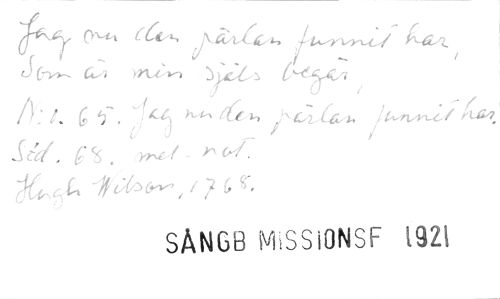 Jag nu den pärlan funnit har,
Som är min själs begär,
N:o. 65. Jag nu den pärlan funnit har.
Sid. 68. mel. not.
Hugh Wilson, 1768.
SÅNGB MISSIONSF 1921